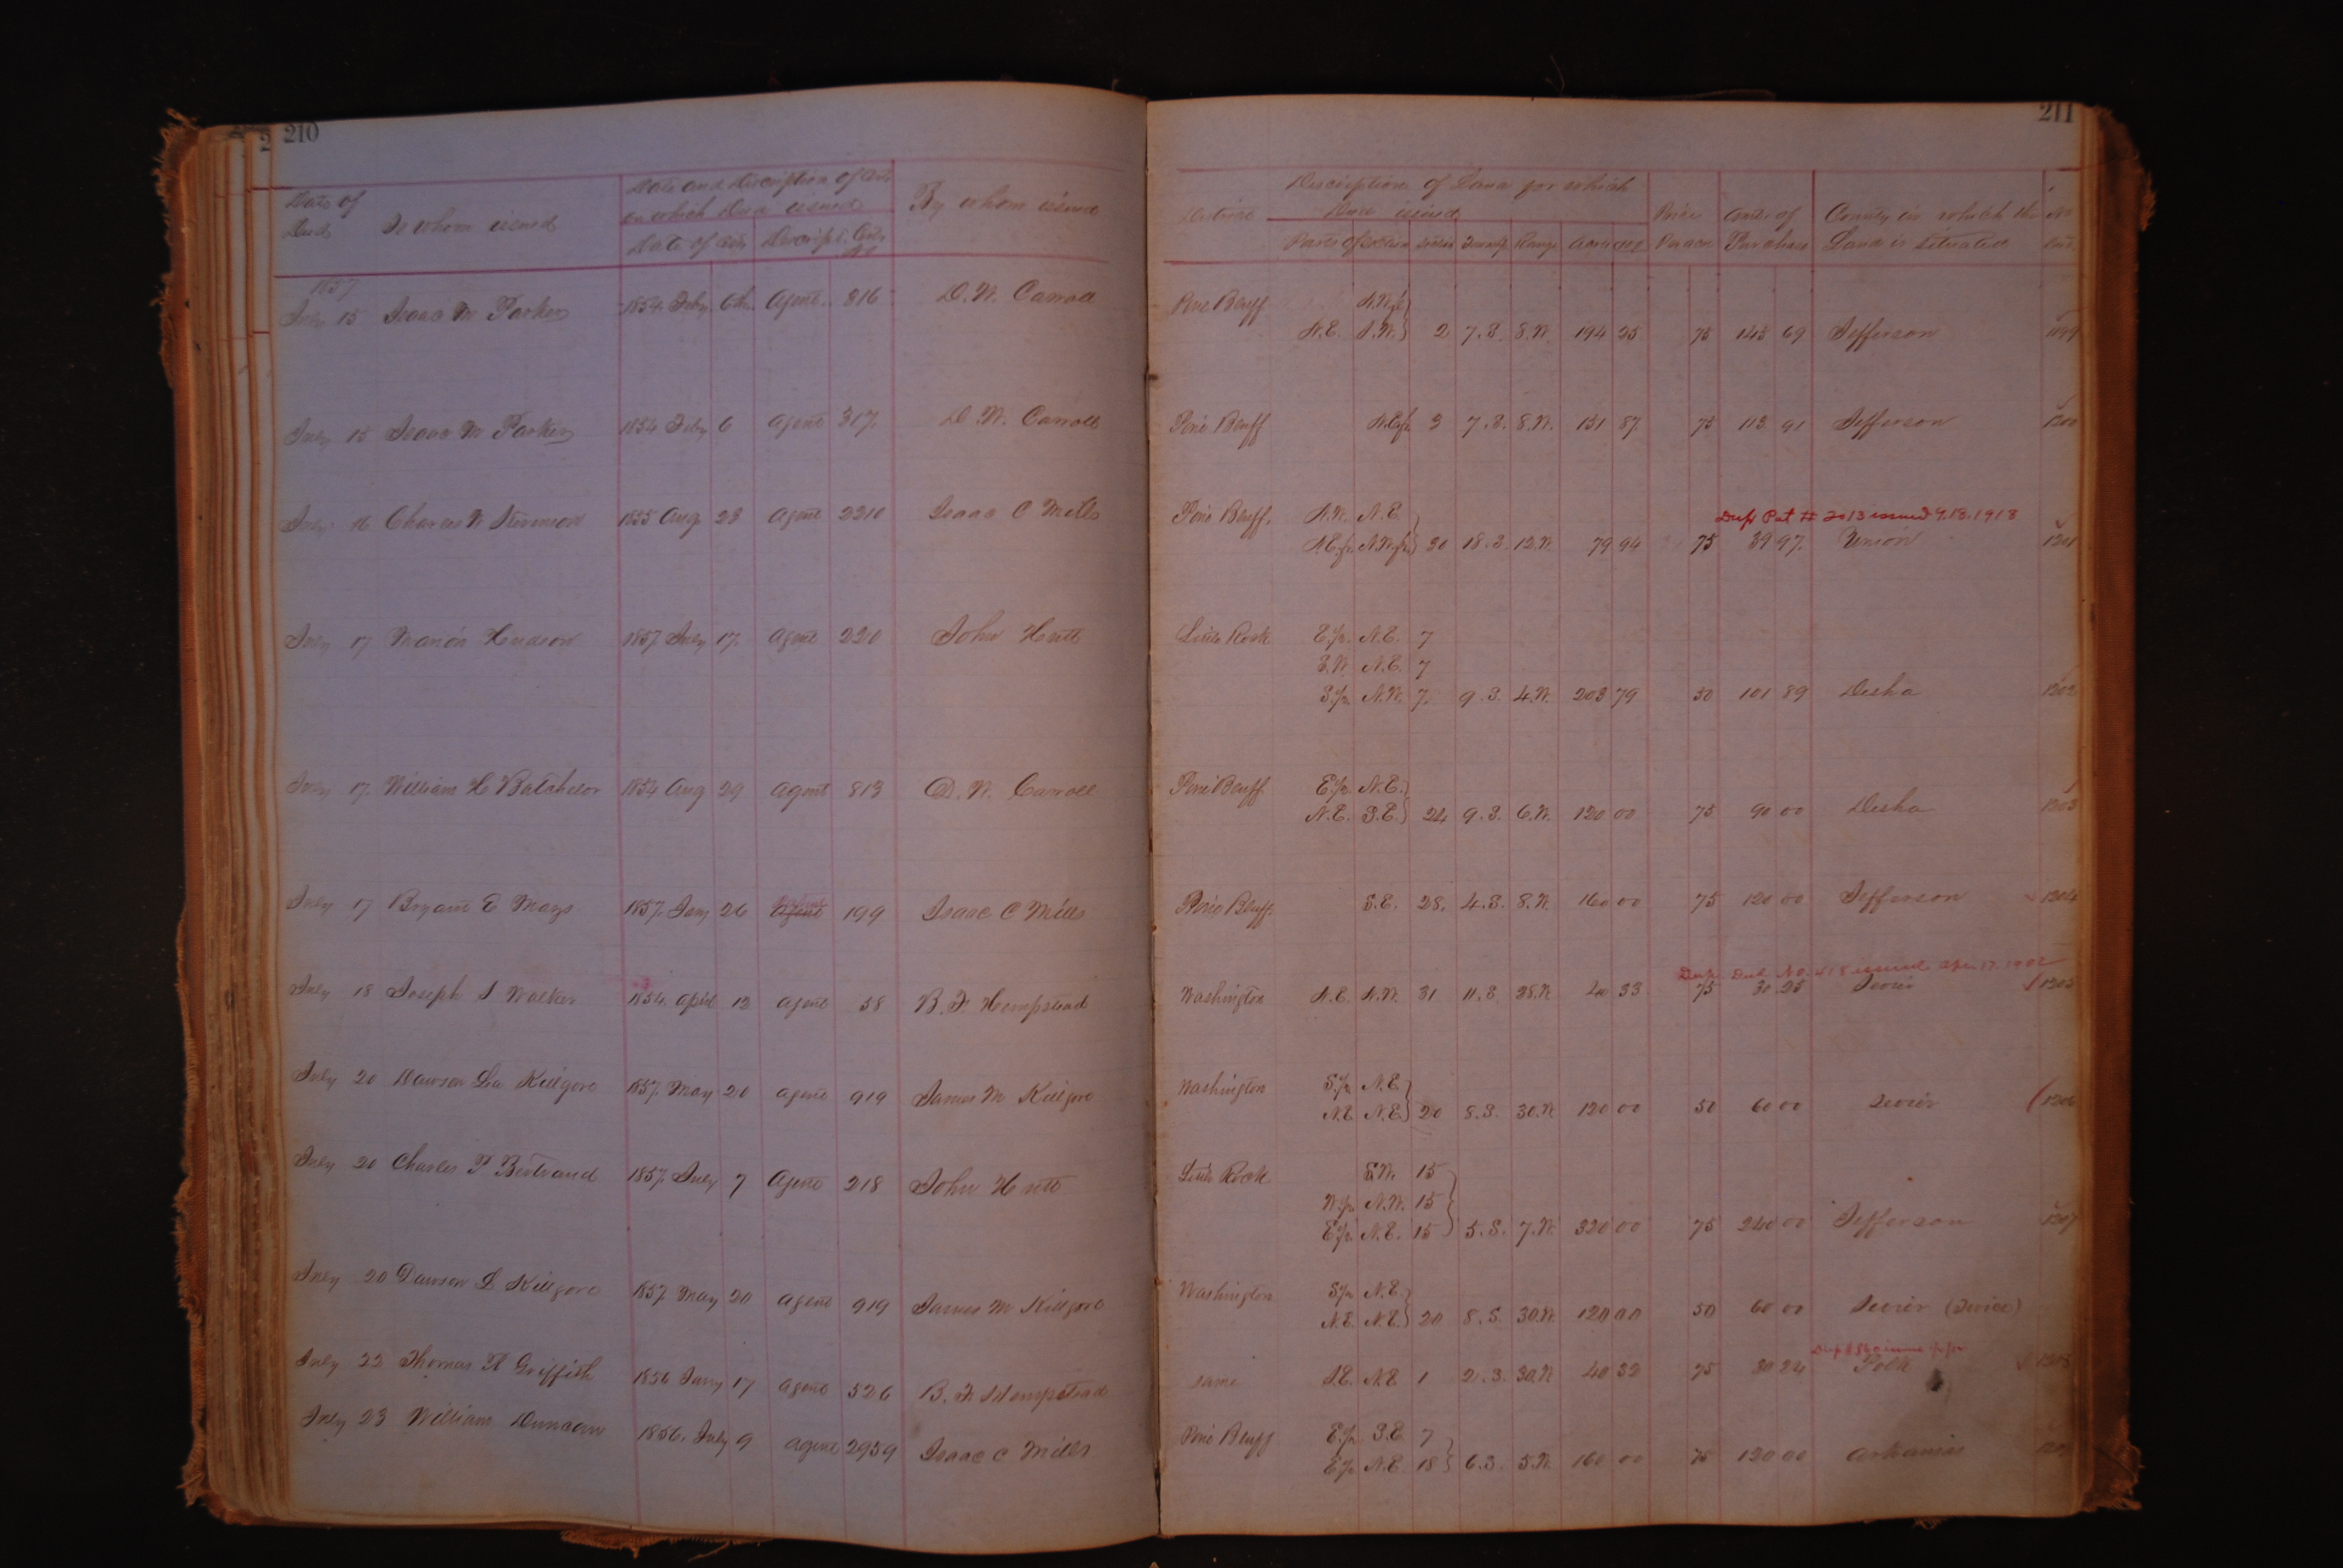 210
Date of Deed
To whom issued
Date and Description of Certs on which Deed issued
Date of Cert. Descript. Certs No
By whom issued
1857
July 15 Isaac M Parker 1854 Feby. 6th. Agent. 816 D. W. Carroll
July 15 Isaac M Parker 1854 Feby 6 Agent 317. D. W. Carroll
July 16 Charles N 1855 Aug 28 Agent 2210 Isaac C Mills
July 17 Marion Hudson 1857 July 17. Agent 220 John Hutt
July 17. William H Batchelor 1854 Aug 29 Agent 813 D. W. Carroll
July 17 Bryant E Mays 1857. Jany 26 Agent 199 Isaac C Mills
July 18 Joseph S Walker 1854 April 12 Agent 58 B. F. Hempstead
July 20 Dawson Killgore 1857. May 20 Agent 919 James M Killgore
July 20 Charles P Bertrand 1857. July 7 Agent 218 John Hutt
July 20 Dawson L Killgore 1857. May 20 Agent 919 James M Killgore
July 22 Thomas H Griffith 1856 Jany 17 Agent 526 B. F. Hempstead
July 23 William Duncan 1856. July 9 Agent 2959 Isaac C Mills
211
Description of Land for which Deed issued
District
Parts of Section Section Township Range Acres
Price Per acre
Amts of Purchase
County in which the Land is Situated
No
Pine Bluff
N.E. S.W. 2 7.S. 8.W. 194 25 75 145 69 Jefferson 1199
Pine Bluff 3 7.S. 8.W. 151 87 75 113 91 Jefferson 1200
Dup Pat # 2013 issued 9.18.1918
Pine Bluff. N.E.
30 18.S. 12.W. 79 94 75 39 97. Union 1201
Little Rock E.½ N.E. 7
S.W. N.E. 7
S.½ N.W. 7. 9.S. 4.W. 203 79 50 101 89 Desha 1202
Pine Bluff E.½ N.E.
N.E. S.E. 24 9.S. 6.W. 120 00 75 90 00 Desha 1203
Pine Bluff. S.E. 28. 4.S. 8.W. 160 00 75 120 00 Jefferson 1204
Dup. Deed No. issued Apr 17. 1902
Washington N.W. 31 11.S. 28.W. 40 33 75 30 25 Sevier 1205
Washington S.½ N.E.
N.E. N.E. 20 8.S. 30.W. 120 00 50 60 00 Sevier 1206
Little Rock S.W. 15
W.½ N.W. 15
E.½ N.E. 15 5.S. 7.W. 320 00 75 240 00 Jefferson 1207
Washington S.½ N.E.
N.E. N.E. 20 8.S. 30.W. 120 00 50 60 00 Sevier (Twice)
Same N.E. 1 2.S. 30.W. 40 32 75 30 24 Polk 1208
Pine Bluff E.½ S.E. 7
E.½ N.E. 18 6.S. 5.W. 160 00 75 120 00 Arkansas